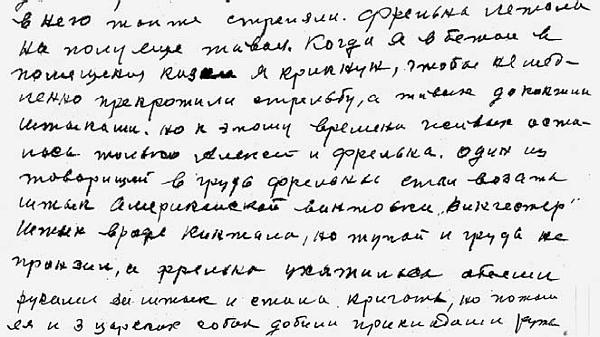 в него тоже стреляли. Фрельна лежала
на полу еще живая. Когда я вбежал в
помещения казни я крикнул, чтобы немед-
ленно прекротили стрельбу, а живых докончили
штыками. но к этому времени в живых оста-
лось только Алексей и Фрельна. один из
товарищей в грудь фрельны стал вогать
штык Американской винтовки „Винчестер"
Штык вроде кинжала, но тупой и грудь не
пронзил, а фрельна ухвтилась обеими
руками за штык и стала кричать, но потом
ея и 3 царских собак добили прикладами ружъ